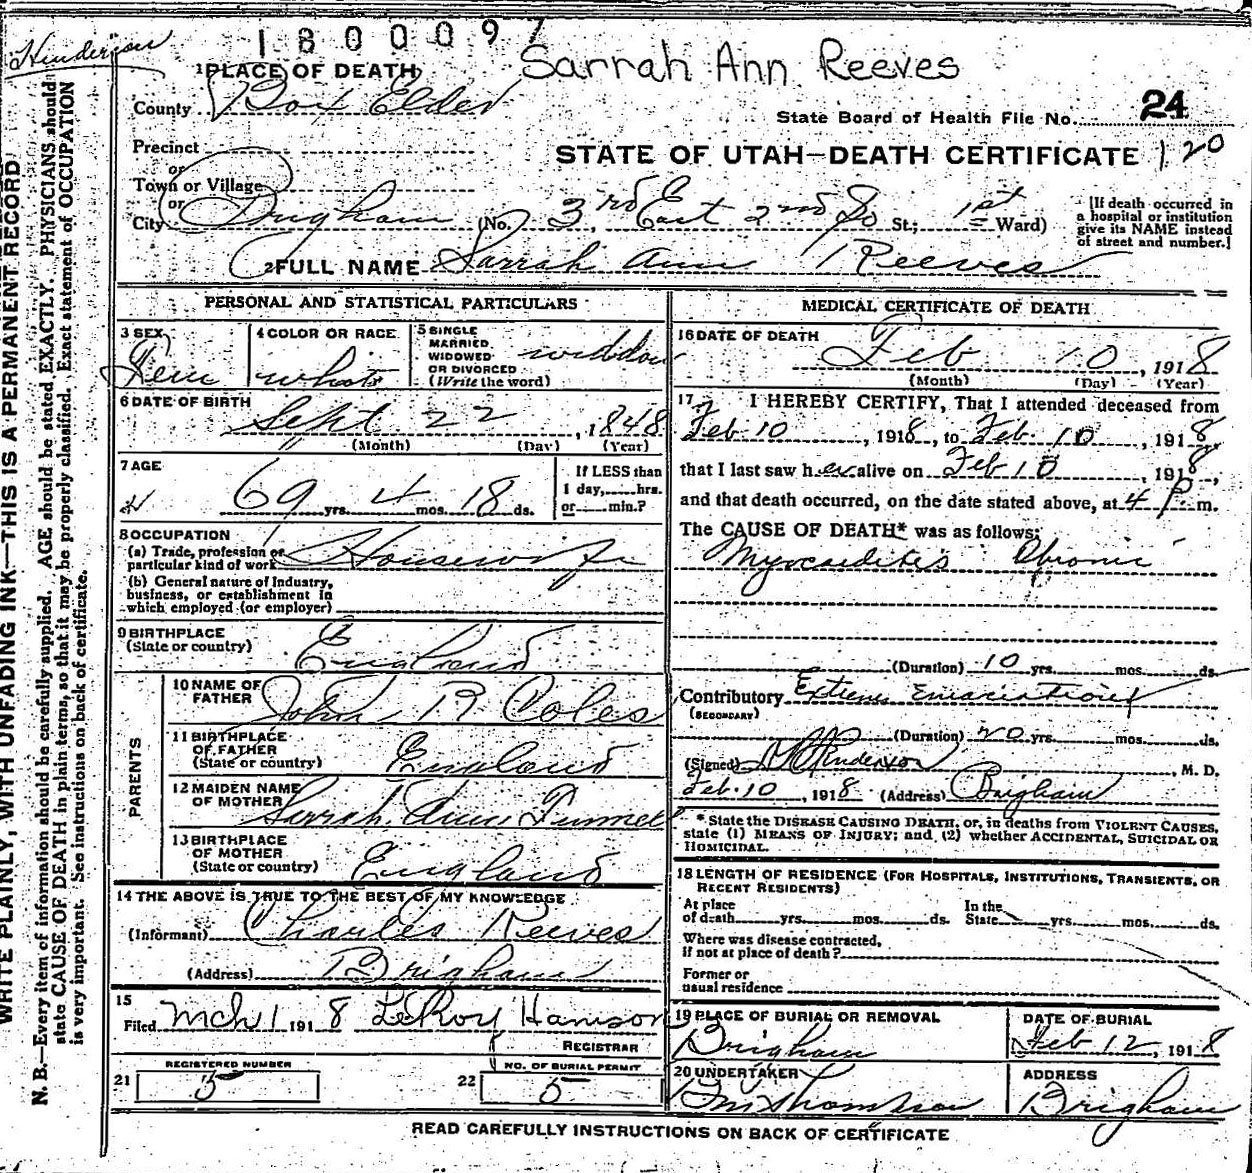 Henderson
1800097
Sarrah Ann Reeves
1 PLACE OF DEATH
County Box Elder
State Board of Health File No. 24
Precinct
STATE OF UTAH—DEATH CERTIFICATE 120
or
Town or Village
or
City Brigham (No. 3rd East 2nd So St.; 1st Ward)
[If death occurred in a hospital or institution give its NAME instead of street and number.]
2 FULL NAME Sarrah Ann Reeves
PERSONAL AND STATISTICAL PARTICULARS
3 SEX Fem
4 COLOR OR RACE white
5 SINGLE
MARRIED
WIDOWED
OR DIVORCED
(Write the word) widdow
6 DATE OF BIRTH
Sept 22, 1848
(Month) (Day) (Year)
7 AGE
69 yrs. 4 mos. 18 ds.
If LESS than
1 day,......hrs.
or......min.?
8 OCCUPATION
(a) Trade, profession or
particular kind of work
(b) General nature of Industry,
business, or establishment in
which employed (or employer)
9 BIRTHPLACE
(State or country) England
PARENTS
10 NAME OF
FATHER John R Coles
11 BIRTHPLACE
OF FATHER
(State or country) England
12 MAIDEN NAME
OF MOTHER Sarrah Ann
13 BIRTHPLACE
OF MOTHER
(State or country) England
14 THE ABOVE IS TRUE TO THE BEST OF MY KNOWLEDGE
(Informant) Charles Reeves
(Address) Brigham
15
Filed Mch 1 1918 LeRoy Hanson
REGISTRAR
REGISTERED NUMBER
21 5
NO. OF BURIAL PERMIT
22 5
MEDICAL CERTIFICATE OF DEATH
16 DATE OF DEATH
Feb 10, 1918
(Month) (Day) (Year)
17 I HEREBY CERTIFY, That I attended deceased from
Feb 10, 1918, to Feb. 10, 1918,
that I last saw her alive on Feb 10, 1918,
and that death occurred, on the date stated above, at 4 P m.
The CAUSE OF DEATH* was as follows:
Myocarditis Chronic
(Duration) 10 yrs. mos. ds.
Contributory Extreme Emaciation
(SECONDARY)
(Duration) 20 yrs. mos. ds.
(Signed) Henderson, M. D.
Feb. 10, 1918 (Address) Brigham
* State the DISEASE CAUSING DEATH, or, in deaths from VIOLENT CAUSES,
state (1) MEANS OF INJURY; and (2) whether ACCIDENTAL, SUICIDAL OR
HOMICIDAL.
18 LENGTH OF RESIDENCE (FOR HOSPITALS, INSTITUTIONS, TRANSIENTS, OR
RECENT RESIDENTS)
At place
of death yrs. mos. ds.
In the
State yrs. mos. ds.
Where was disease contracted,
if not at place of death?
Former or
usual residence
19 PLACE OF BURIAL OR REMOVAL
Brigham
DATE OF BURIAL
Feb 12, 1918
20 UNDERTAKER
Thompson
ADDRESS
Brigham
READ CAREFULLY INSTRUCTIONS ON BACK OF CERTIFICATE
WRITE PLAINLY, WITH UNFADING INK—THIS IS A PERMANENT RECORD
N. B.—Every item of information should be carefully supplied. AGE should be stated EXACTLY. PHYSICIANS should
state CAUSE OF DEATH in plain terms, so that it may be properly classified. Exact statement of OCCUPATION
is very important. See instructions on back of certificate.